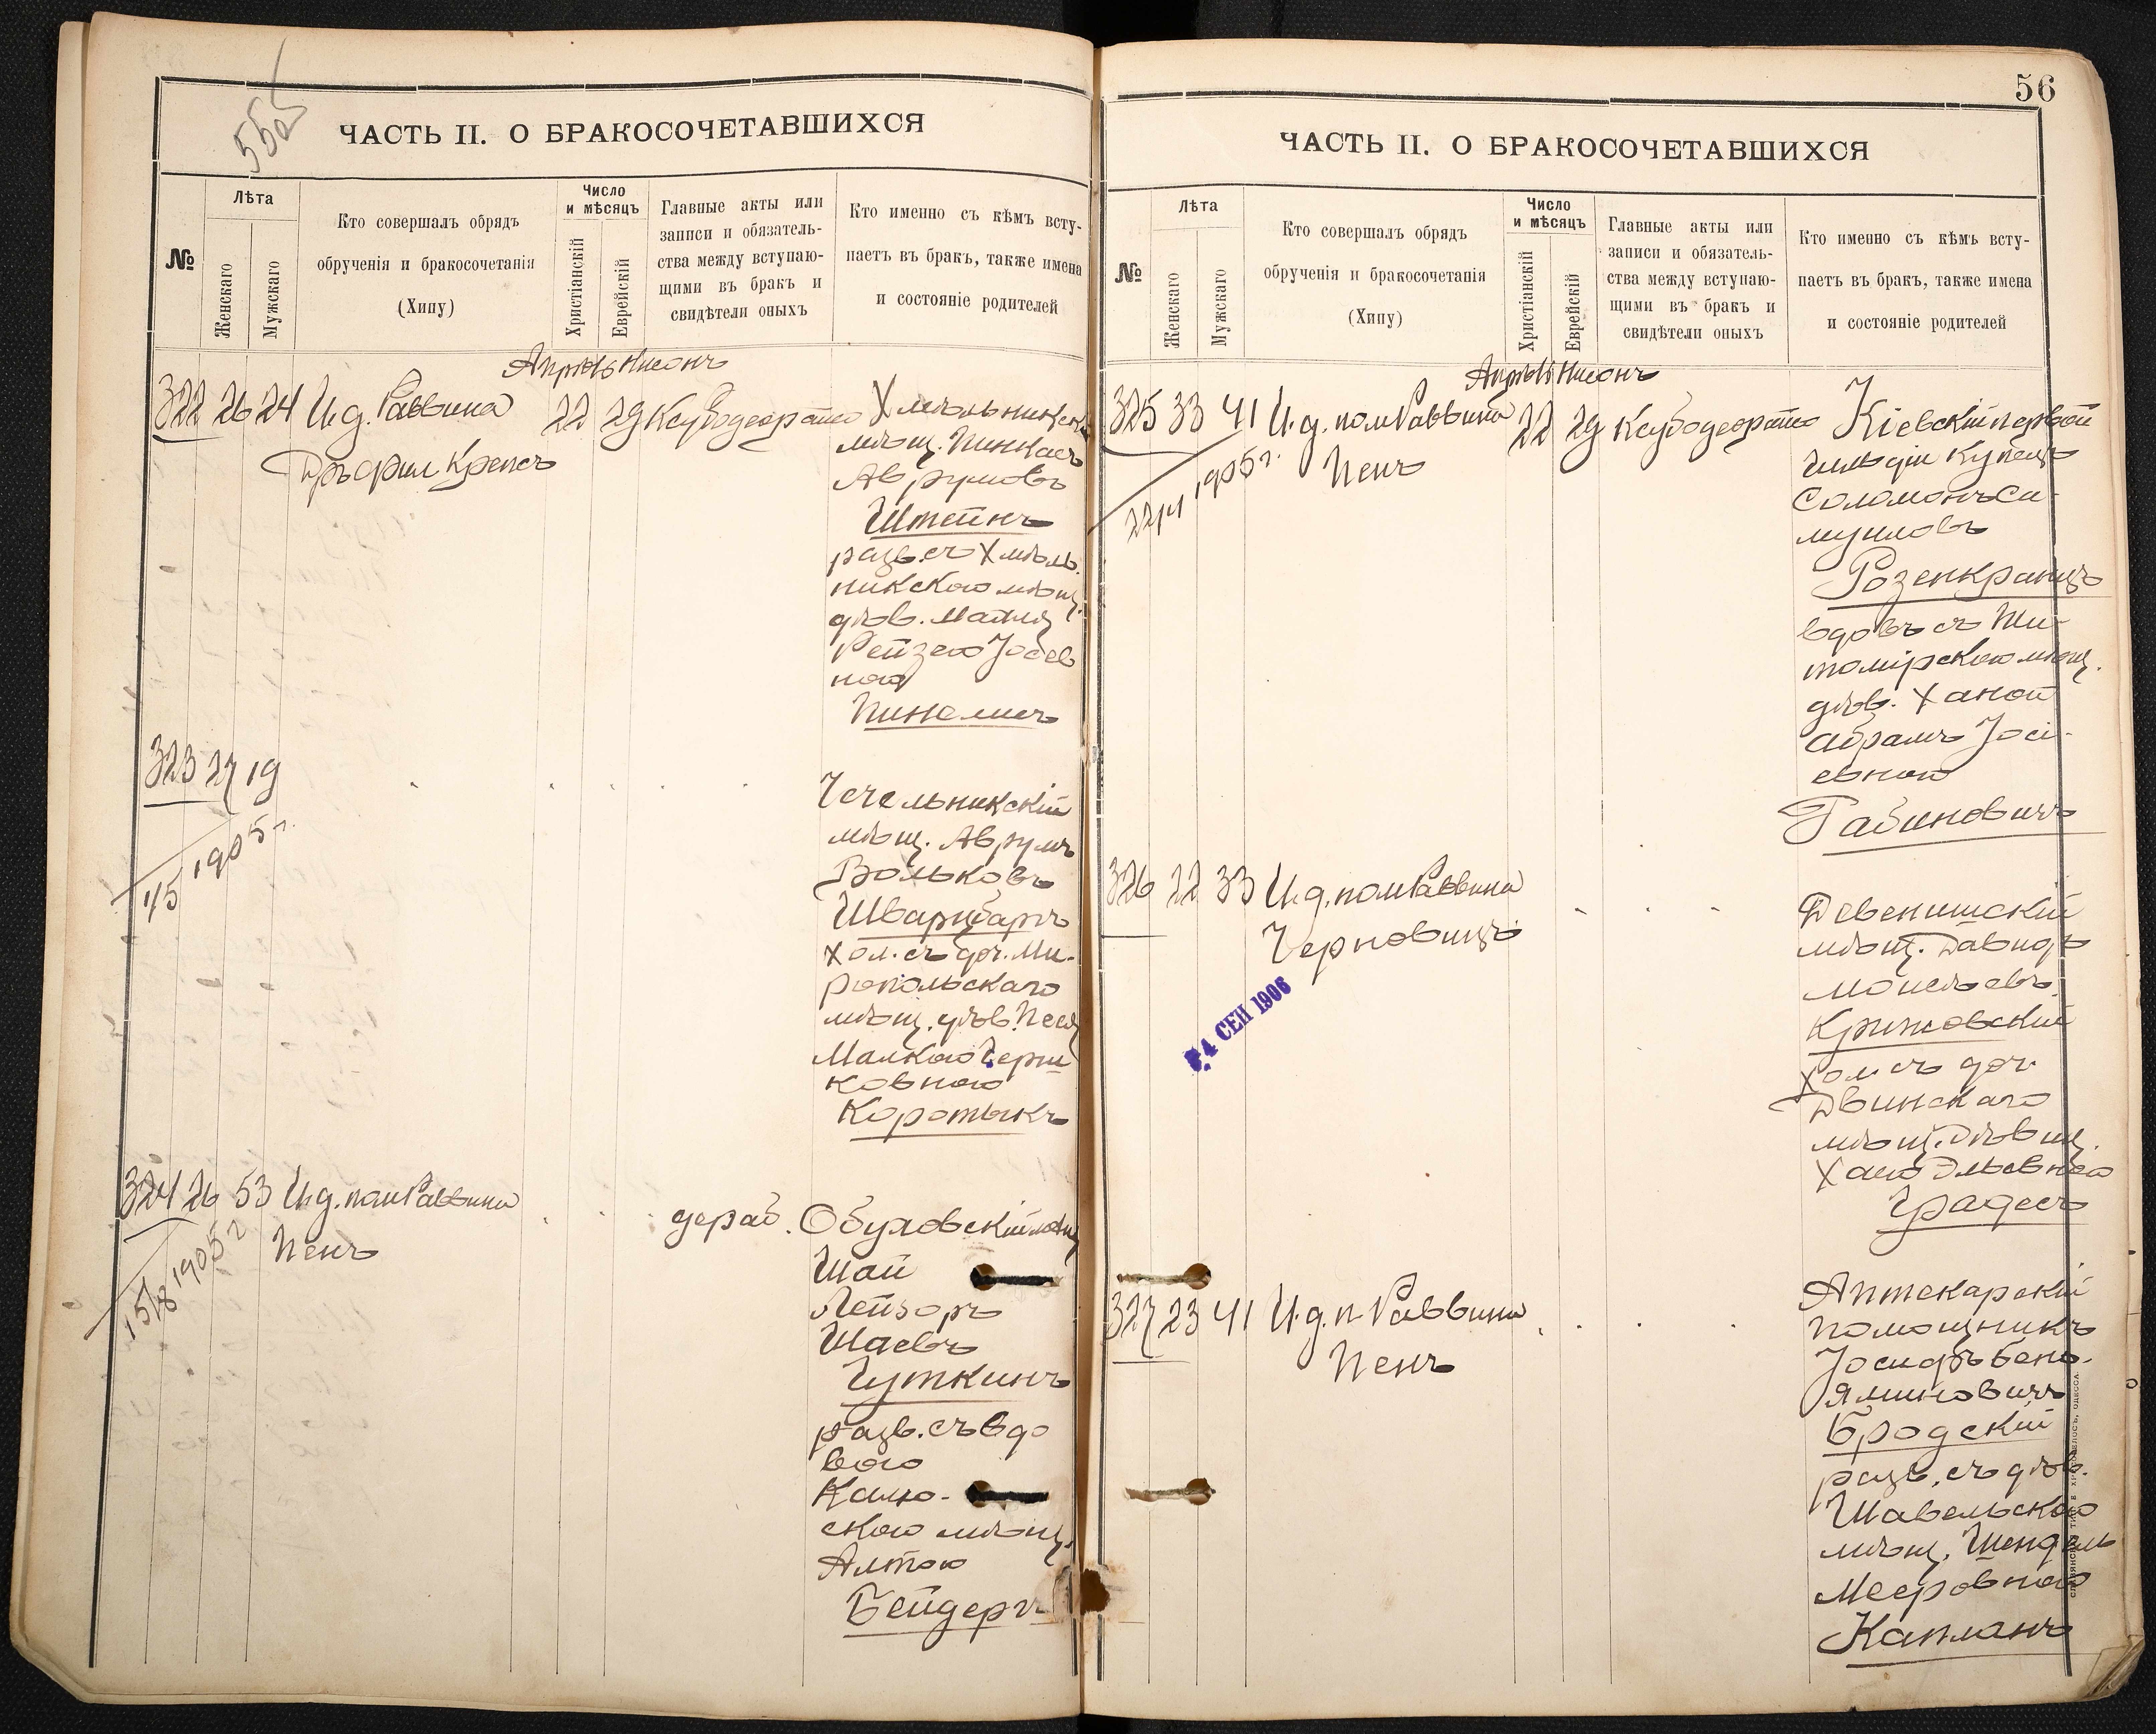 55об
ЧАСТЬ II. О БРАКОСОЧЕТАВШИХСЯ
№
Лѣта
Женскаго
Мужскаго
Кто совершалъ обрядъ
обрученія и бракосочетанія
(Хипу)
Число
и мѣсяцъ
Христіанскій
Еврейскій
Главные акты или
записи и обязатель-
ства между вступаю-
щими въ бракъ и
свидѣтели оныхъ
Кто именно съ кѣмъ всту-
паетъ въ бракъ, также имена
и состояніе родителей
Апрѣль Нисонъ
322 26 24 И.д. Раввина 22 29
Крепсъ
Хмѣльникскій
мѣщ. Пинкасъ
Аврумовъ
Штейнъ
разв. съ Хмѣль-
никскою мѣщ.
дѣв.
Рейзею Іосев
ною
323 27 19
1905 г.
45
Чечельникскій
мѣщ. Аврумъ
Вольковъ
Шварцбартъ
хол. съ доч. Ми-
ропольскаго
мѣщ. дѣв. Песя
Малкою Герш
ковною
Коротыкъ
324 26 53 И.д. пом Раввина
Пенъ
1905 г
1518
Обуховскій мѣщ
Шай
Лейзоръ
Шаевъ
Гуткинъ
разв. съ вдо
вою
скою мѣщ.
Алтою
56
ЧАСТЬ II. О БРАКОСОЧЕТАВШИХСЯ
№
Лѣта
Женскаго
Мужскаго
Кто совершалъ обрядъ
обрученія и бракосочетанія
(Хипу)
Число
и мѣсяцъ
Христіанскій
Еврейскій
Главные акты или
записи и обязатель-
ства между вступаю-
щими въ бракъ и
свидѣтели оныхъ
Кто именно съ кѣмъ всту-
паетъ въ бракъ, также имена
и состояніе родителей
Апрѣль Нисонъ
325 33 41 И.д. пом Раввина 22 29
Пенъ
1905 г.
Кіевскій первой
гильдіи Купецъ
Соломонъ Са-
муиловъ
Розенкранцъ
вдовъ съ Жи-
томірскою мѣщ.
дѣв. Ханой
Абрамъ Іосі-
евной
Рабиновичъ
326 22 33 И.д. пом Раввина
Черновицъ
4 СЕН 1906
Девенишскій
мѣщ. Давидъ
Мойсѣевъ
Крыжовскій
хол. съ доч.
Двинскаго
мѣщ. дѣвиц.
Хаею Эльевною
Градесъ
327 23 41 И.д. п Раввина
Пенъ
Аптекарскій
помощникъ
Іосифъ Бень-
яминовичъ
Бродскій
разв. съ дѣв.
Шавельскою
мѣщ. Шендель
Мееровною
Капланъ